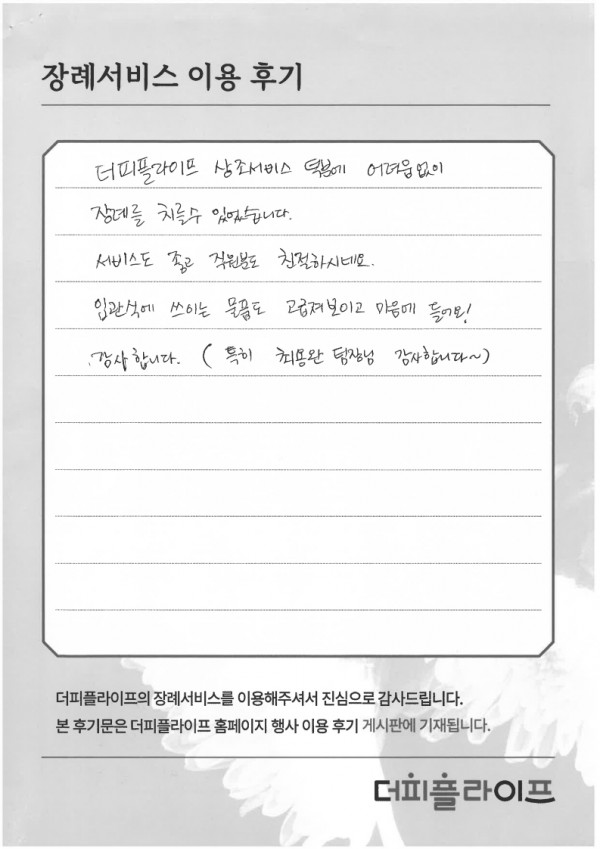 장례서비스 이용 후기
더피플라이프 상조서비스 덕분에 어려움없이
장례를 치를수 있었습니다.
서비스도 좋고 직원분도 친절하시네요.
입관식에 쓰이는 물품도 고급져보이고 마음에 들어요!
감사합니다. (특히 최용완 팀장님 감사합니다~)
더피플라이프의 장례서비스를 이용해주셔서 진심으로 감사드립니다.
본 후기문은 더피플라이프 홈페이지 행사 이용 후기 게시판에 기재됩니다.
더피플라이프